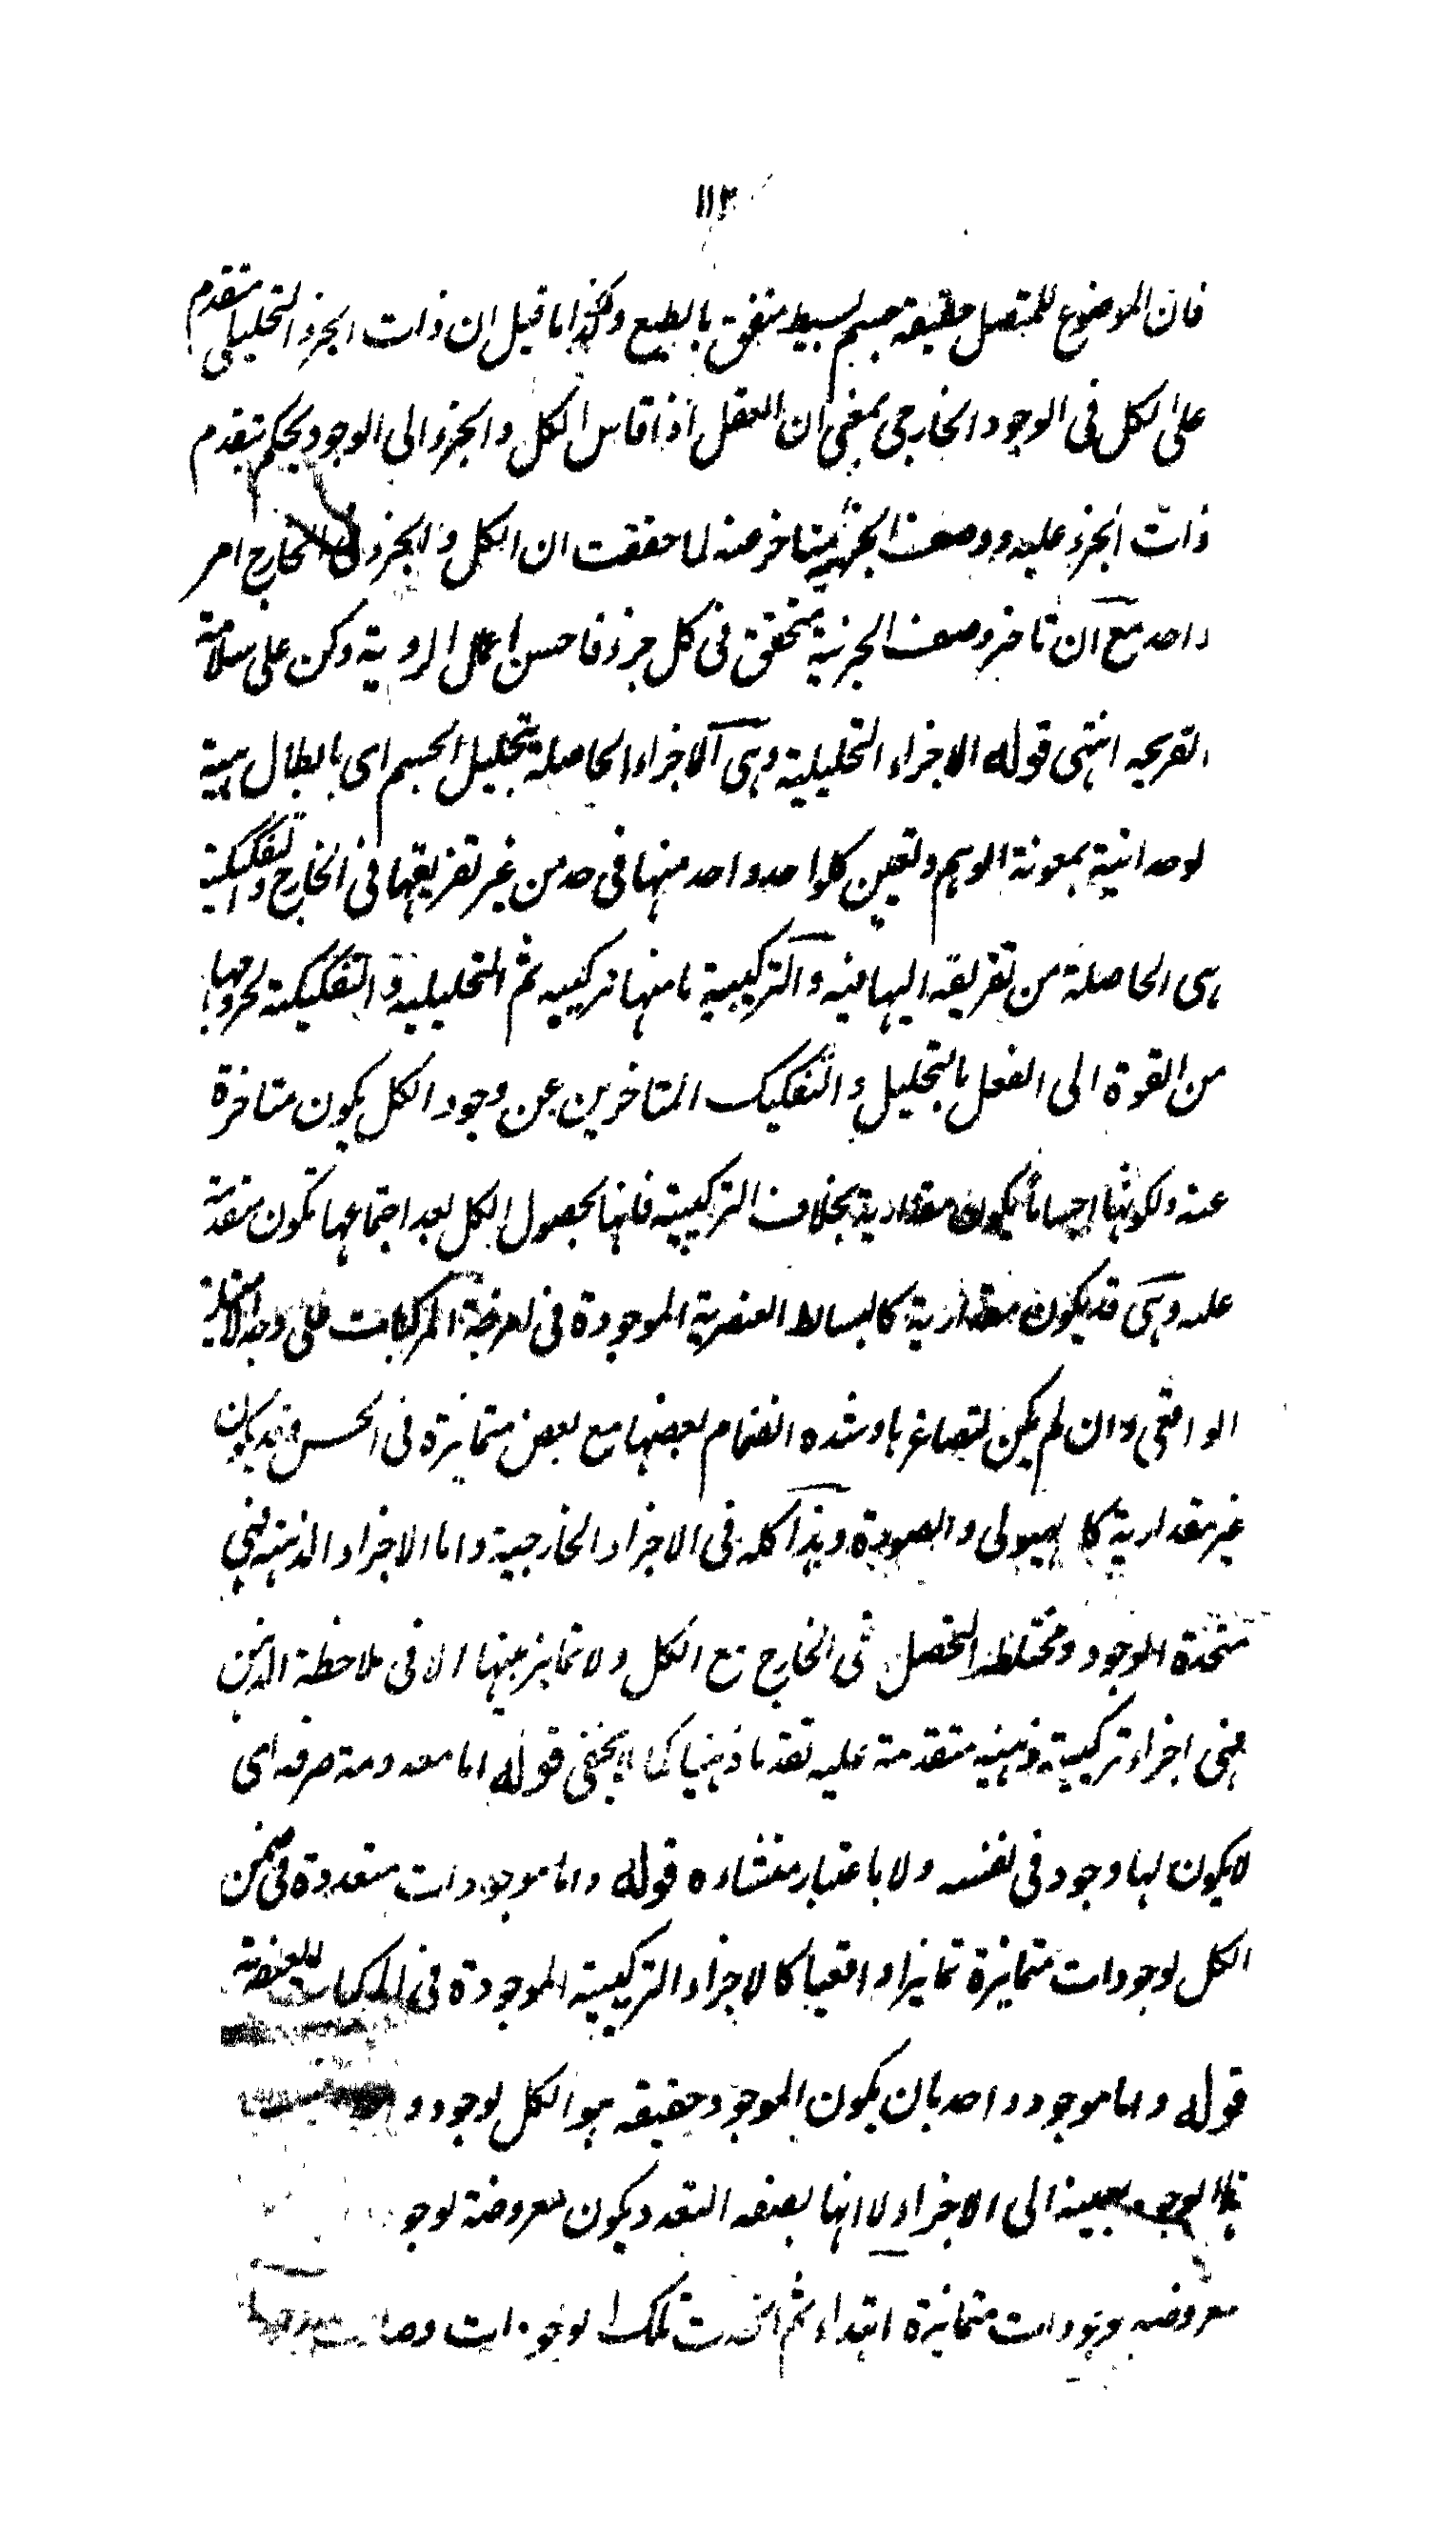 ١١٢
فان الموضوع للمتصل حقيقة جسم بسيط متفق بالطبع وكذا ما قيل ان ذات الجزء التحليلى متقدم
على الكل فى الوجود الخارجى بمعنى ان العقل اذا قاس الكل والجزء الى الوجود يحكم بتقدم
ذات الجزء عليه ووصف الجزئية متاخر عنه لما حققت ان الكل والجزء فى الخارج امر
واحد مع ان تاخر وصف الجزئية متحقق فى كل جزء فاحسن اعمال الروية وكن على سلامة
القريحه انتهى قوله الاجزاء التحليلية وهى الاجزاء الحاصلة بتحليل الجسم اى بابطال هيئة
لوحدانية بمعونة الوهم وتعين كلواحد واحد منها فى حد من غير تفريقها فى الخارج والتفكيكية
هى الحاصلة من تفريقه اليها فيه والتركيبية ما منها تركيبه ثم التحليلية والتفكيكية لخروجها
من القوة الى الفعل بالتحليل والتفكيك المتاخرين عن وجود الكل يكون متاخرة
عنه ولكونها احيانا يكون مقدارية بخلاف التركيبية فانها لحصول الكل بعد اجتماعها تكون متقدمة
عليه وهى قد يكون مقدارية كالبسائط العنصرية الموجودة فى المركبات على وجه الامتياز
الواقعى وان لم يكن لتصاغرها وشده انضمام بعضها مع بعض متمائزة فى الحس وقد يكون
غير مقدارية كالهيولى والصورة وهذا كله فى الاجزاء الخارجية واما الاجزاء الذهنية فهى
متحدة الوجود ومختلطة التحصل فى الخارج مع الكل ولا تمايز بينها الا فى ملاحظة الذهن
فهى اجزاء تركيبية ذهنيه متقدمة عليه تقدما ذهنيا كما لا يخفى قوله اما معدومة صرفه اى
لا يكون لها وجود فى نفسه ولا باعتبار منشاءه قوله واما موجودات متعددة فى ضمن
الكل لوجودات متمائزة تمايزا واقعيا كالاجزاء التركيبية الموجودة فى المركبات العنصرية
قوله واما موجود واحد بان يكون الموجود حقيقه هو الكل لوجود و
هذا الوجود بعينه الى الاجزاء لا انها بصفه التعدد يكون معروضة لوجو
معروضه وجودات متمائزة ابتداء ثم اتحدت تلك الوجودات